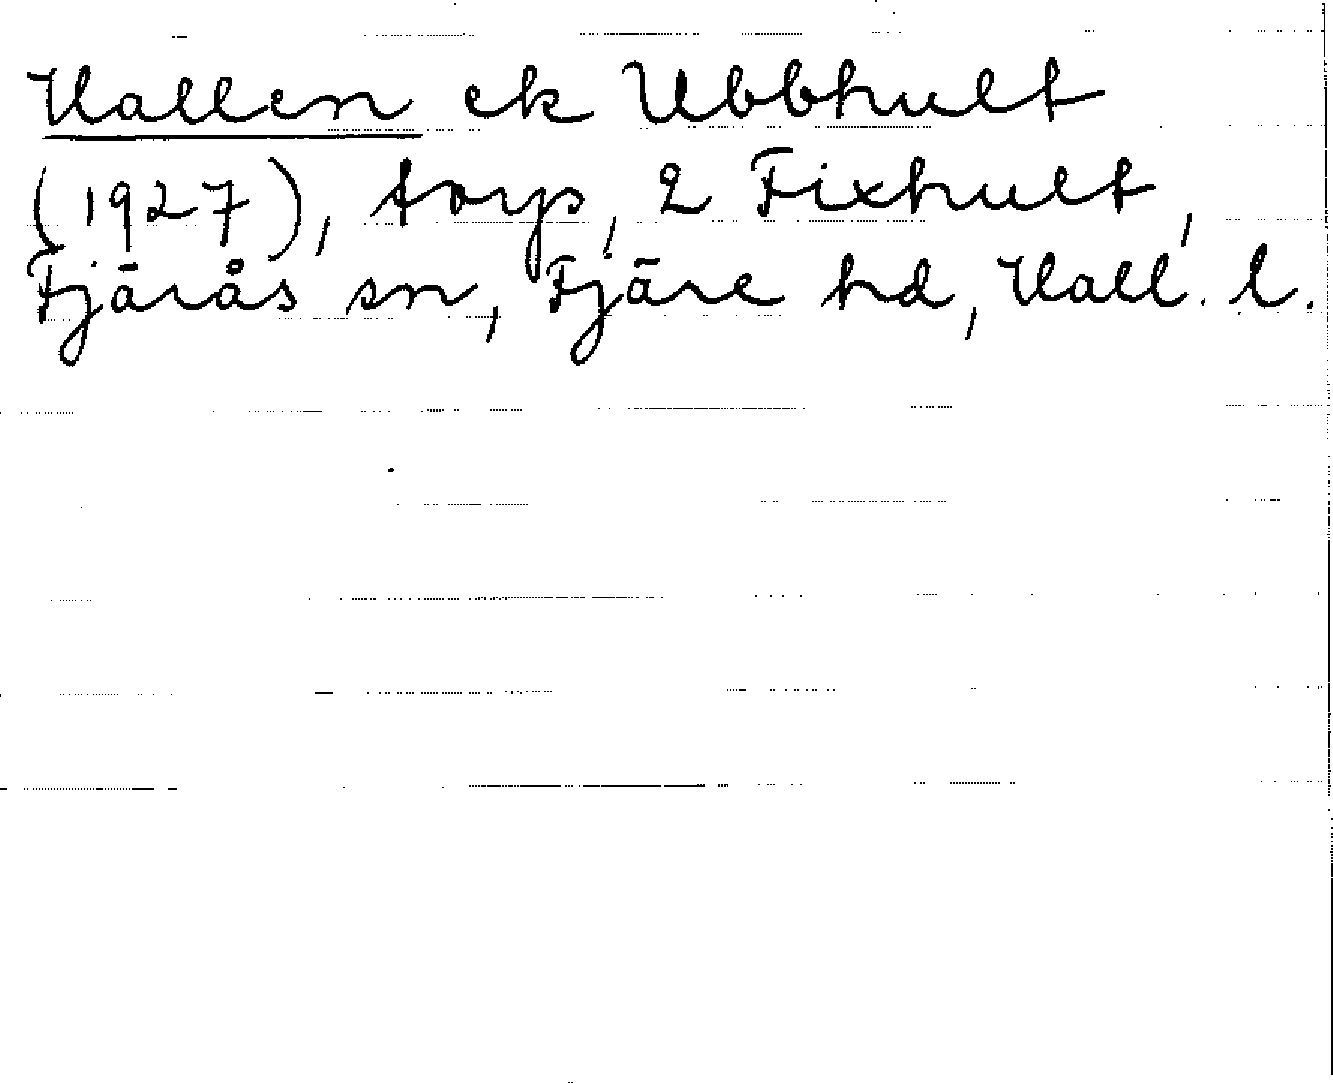 Hallen ek Ubbhult
(1927), torp, 2 Fixhult,
Fjärås sn, Fjäre hd, Hall. l.